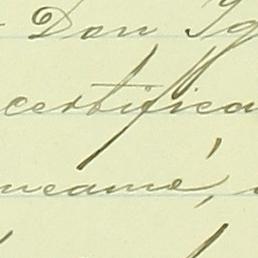 Don Ig
certifica
neamé,